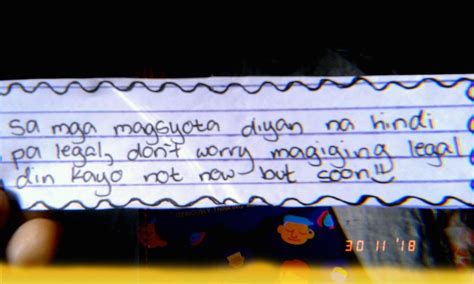 sa mga magsyota diyan na hindi
pa legal, don't worry magiging legal
din kayo not now but soon!!
30 11 '18